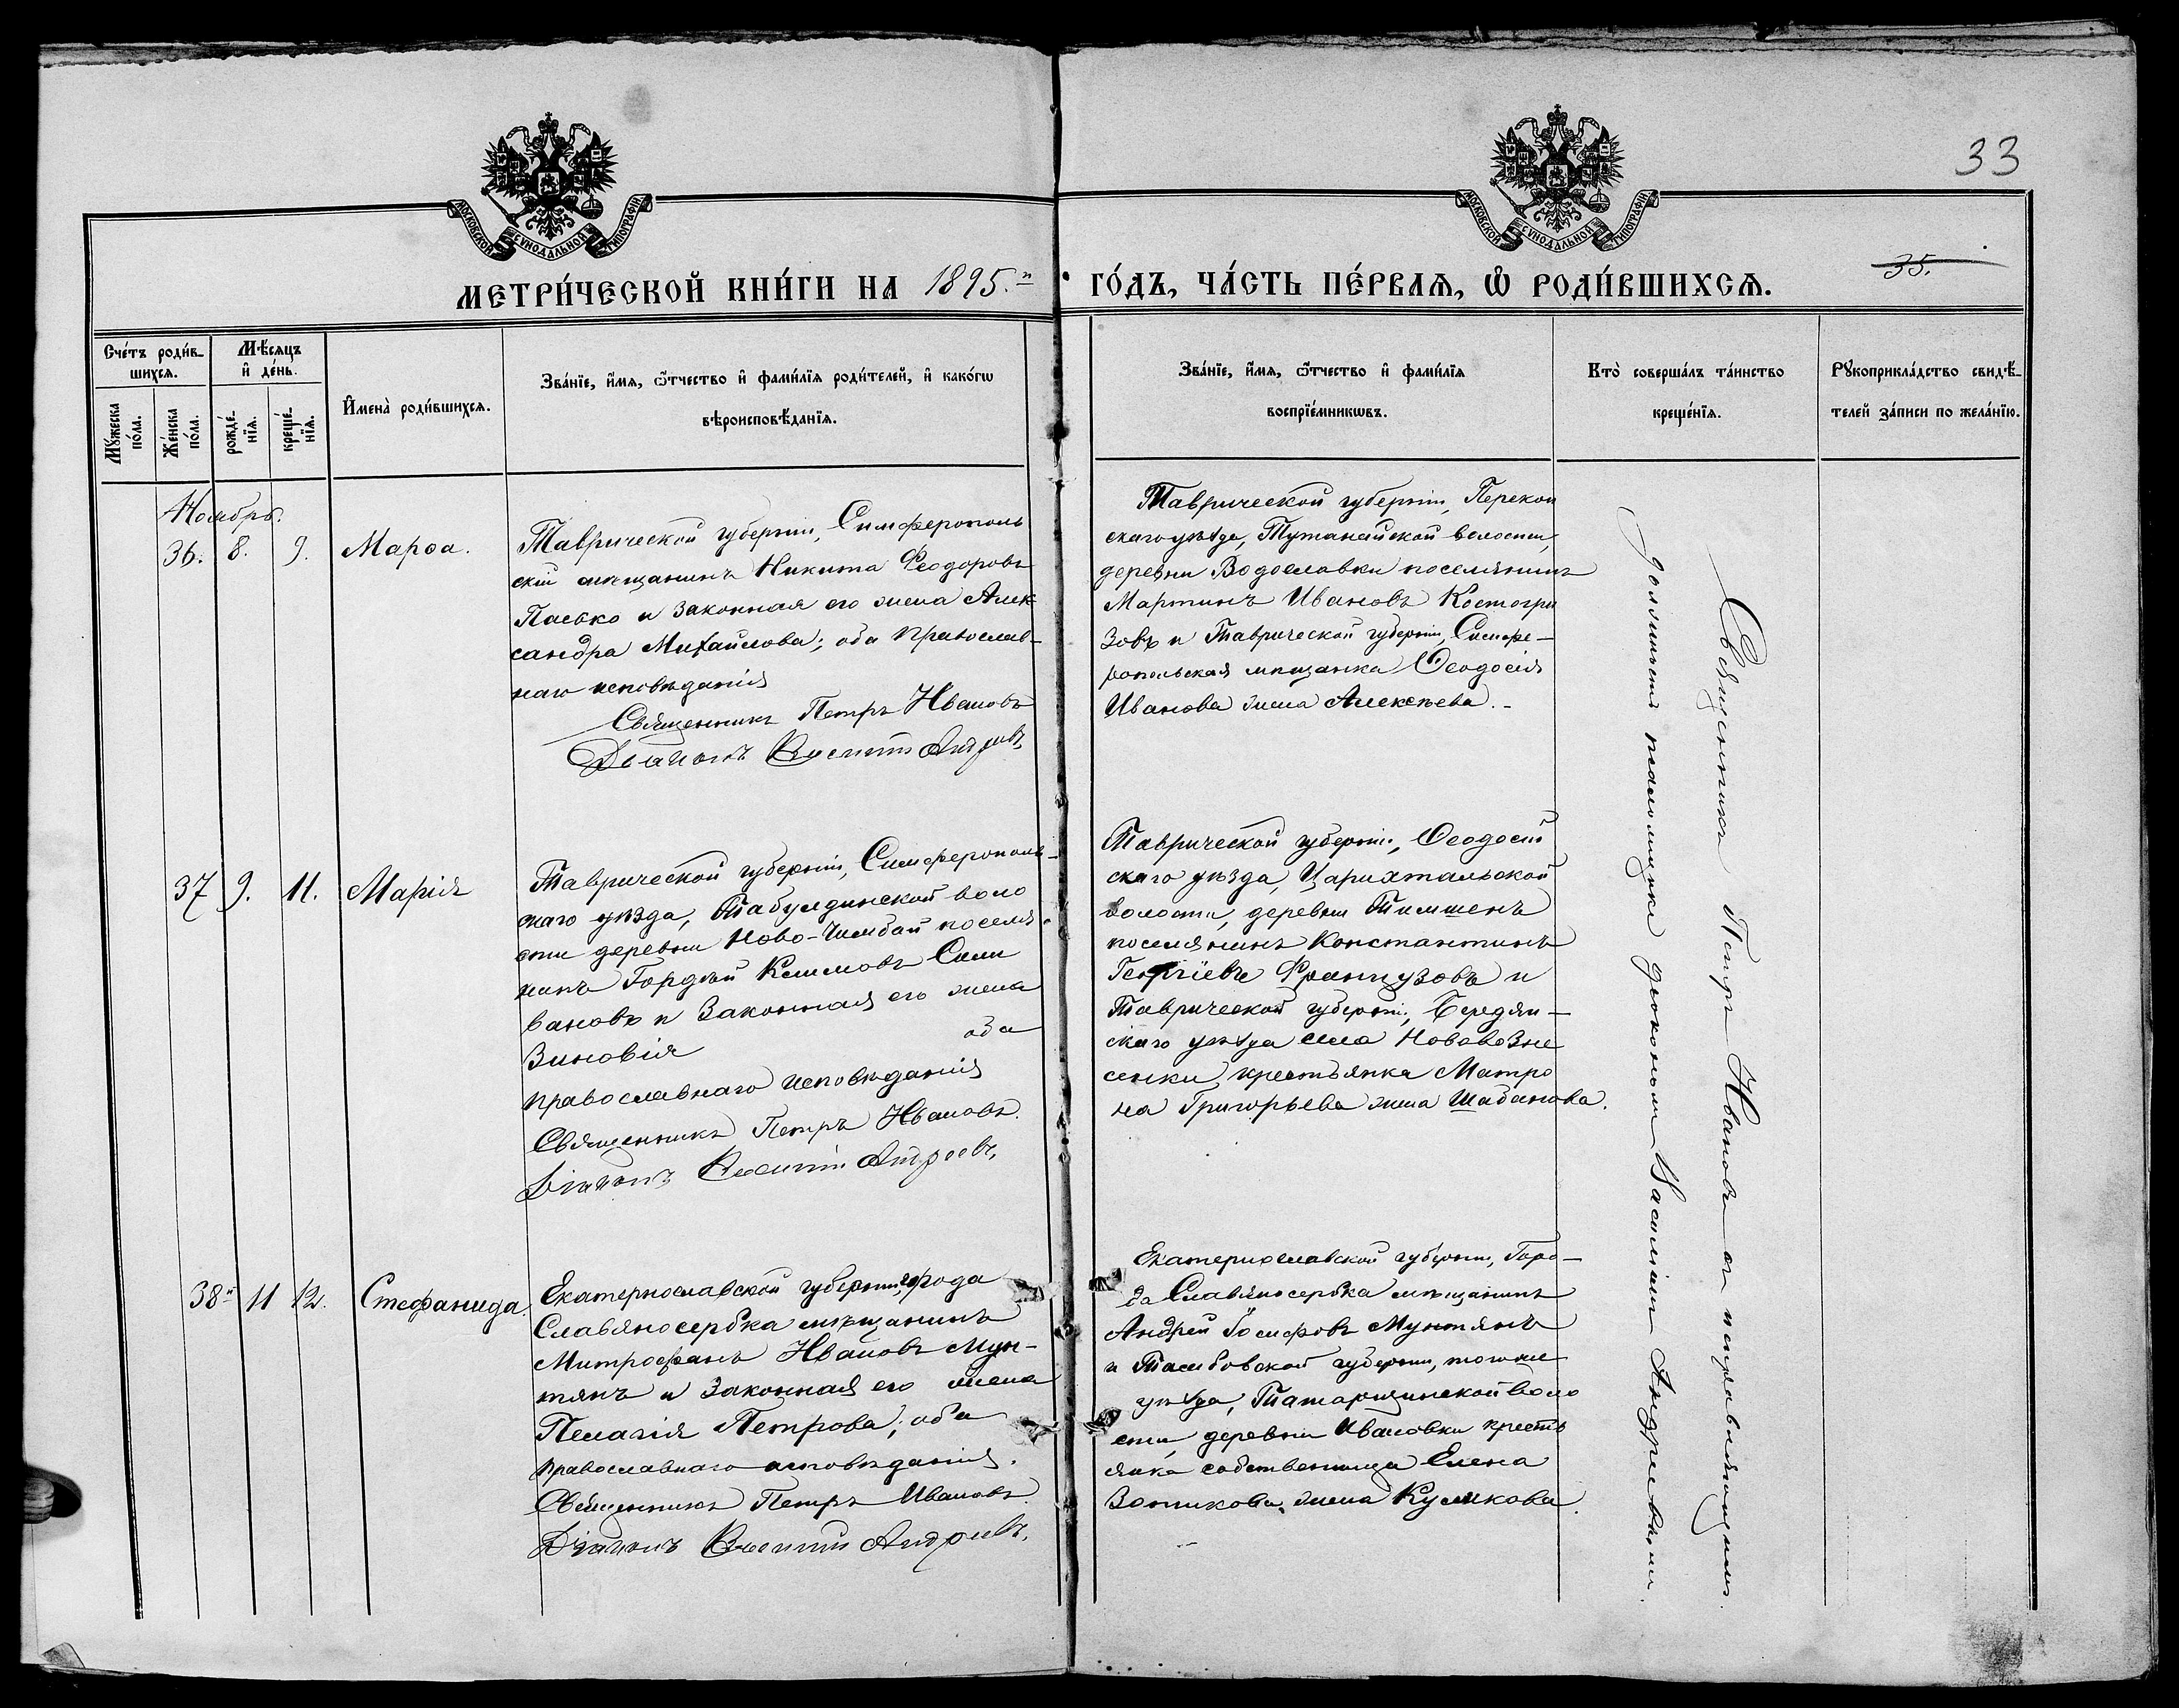 33
МОСКОВСКОЙ СУНОДАЛЬНОЙ ТИПОГРАФІИ
МОСКОВСКОЙ СУНОДАЛЬНОЙ ТИПОГРАФІИ
35.
МЕТРИ́ЧЕСКОЙ КНИ́ГИ НА 1895.й ГО́ДЪ, ЧА́СТЬ ПЕ́РВАѦ, Ѡ РОДИ́ВШИХСѦ.
Сче́тъ роди́в-
шихсѧ.
Мꙋ́жеска по́ла.
Же́нска по́ла.
Мѣ́сѧцъ и҆ де́нь.
рожде́-
нїѧ.
креще́-
нїѧ.
И҆мена̀ роди́вшихсѧ.
Зва́нїе, и҆́мѧ, ѻ҆́тчество и҆ фами́лїѧ роди́телей, и҆ како́гѡ
вѣроисповѣ́данїѧ.
Зва́нїе, и҆́мѧ, ѻ҆́тчество и҆ фами́лїѧ
воспрїе́мникѡвъ.
Кто̀ соверша́лъ та́инство
креще́нїѧ.
Рꙋкоприкла́дство свидѣ́-
телей за́писи по жела́нїю.
Ноябрь.
36. 8. 9. Марѳа.
Таврической губерніи, Симферополь
скій мѣщанинъ Никита Ѳеодоровъ
Пасько и законная его жена Алек
сандра Михайлова; оба православ-
наго исповѣданія
Священникъ Петръ Ивановъ
Діаконъ Василій Андреевъ
Таврической губерніи, Перекоп
скаго уѣзда, волости,
деревни Водославки поселянинъ
Мартинъ Ивановъ Костогри
зовъ и Таврической губерніи, Симфе-
ропольская мѣщанка Ѳеодосія
Иванова жена Алексѣева.-
37 9. 11. Марія
Таврической губерніи, Симферополь-
скаго уѣзда, Табулдинской воло
сти деревни Ново-Чембай поселя-
нинъ Гордѣй Климовъ Сели
вановъ и законная его жена
Зиновія оба
православнаго исповѣданія
Священникъ Петръ Ивановъ.
Діаконъ Василій Андреевъ.
Таврической губерніи, Ѳеодосій
скаго уѣзда, Цюрихтальской
волости, деревни
поселянинъ Константинъ
Георгіевъ Французовъ и
Таврической губерніи, Бердян-
скаго уѣзда села Нововозне
сенки, крестьянка Матро
на Григорьева жена Шабанова.
38й 11 12. Стефанида.
Екатеринославской губерніи, города
Славяносербка мѣщанинъ
Митрофанъ Ивановъ Мун-
тянъ и законная его жена
Пелагія Петрова; оба
православнаго исповѣданія.
Священникъ Петръ Ивановъ
Діаконъ Василій Андреевъ.
Екатеринославской губерніи, Горо-
да Славяносербка мѣщанинъ
Андрей Іосифовъ Мунтянъ
и Тамбовской губерніи, того же
уѣзда, Татарщинской воло
сти, деревни Ивановки кресть
янка собственница Елена
Зотикова, жена Куликова.
Священникъ Петръ Ивановъ съ исправляющимъ
должность псаломщика діакономъ Василіемъ Андреевымъ.